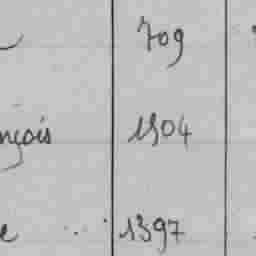 709
nçois 1504
e .. 1397